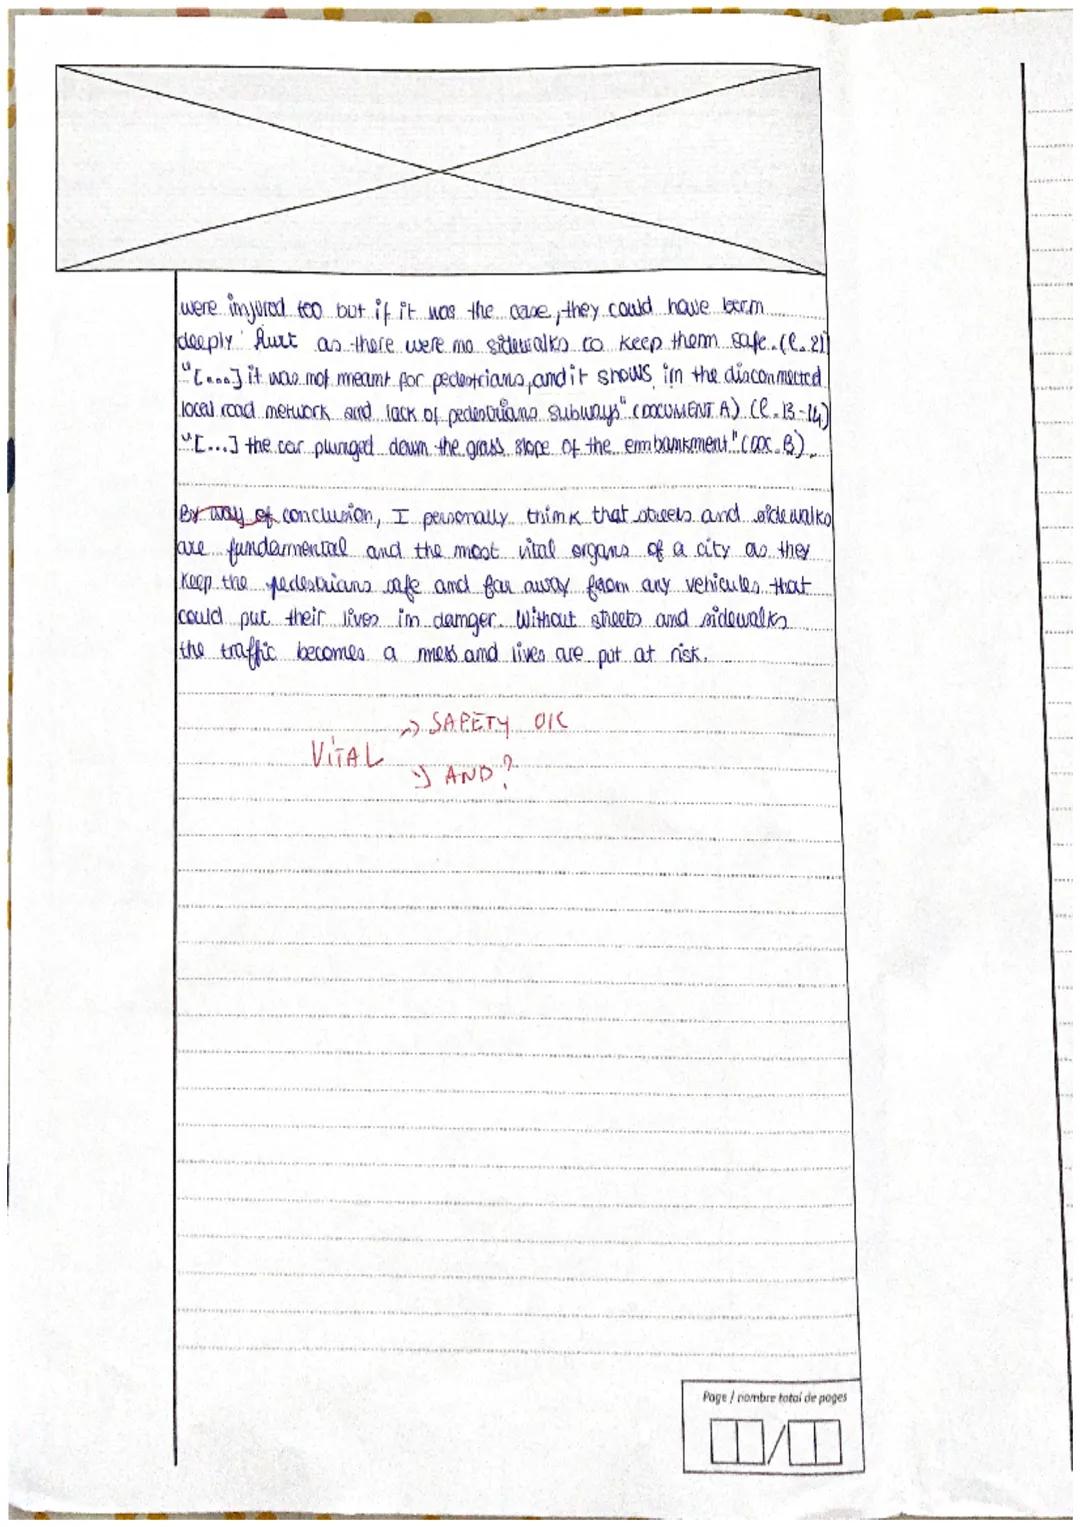 were injured too but if it was the case, they could have been
deeply hurt as there were no sidewalks to keep them safe. (l. 21)
"[....] it was not meant for pedestrians, and it shows in the disconnected
local road network and lack of pedestrians subways" (DOCUMENT A) (l. 13-14)
"[...] the car plunged down the grass slope of the embankment" (DOC. B).
By way of conclusion, I personally think that streets and sidewalks
are fundamental and the most vital organs of a city as they
keep the pedestrians safe and far away from any vehicules that
could put their lives in danger. Without streets and sidewalks
the traffic becomes a mess and lives are put at risk.
→ SAFETY OK
VITAL
→ AND?
Page / nombre total de pages
/